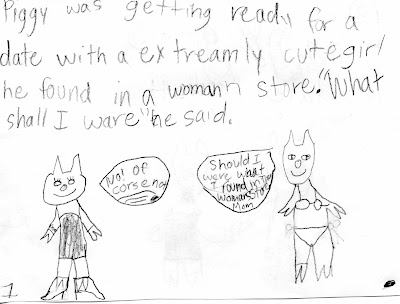 Piggy was getting ready for a
date with a extreamly cute girl
he found in a womann store. "What
shall I ware" he said.
No! of
corse no
Should I
were what
I found in the
womans store
Mom
1